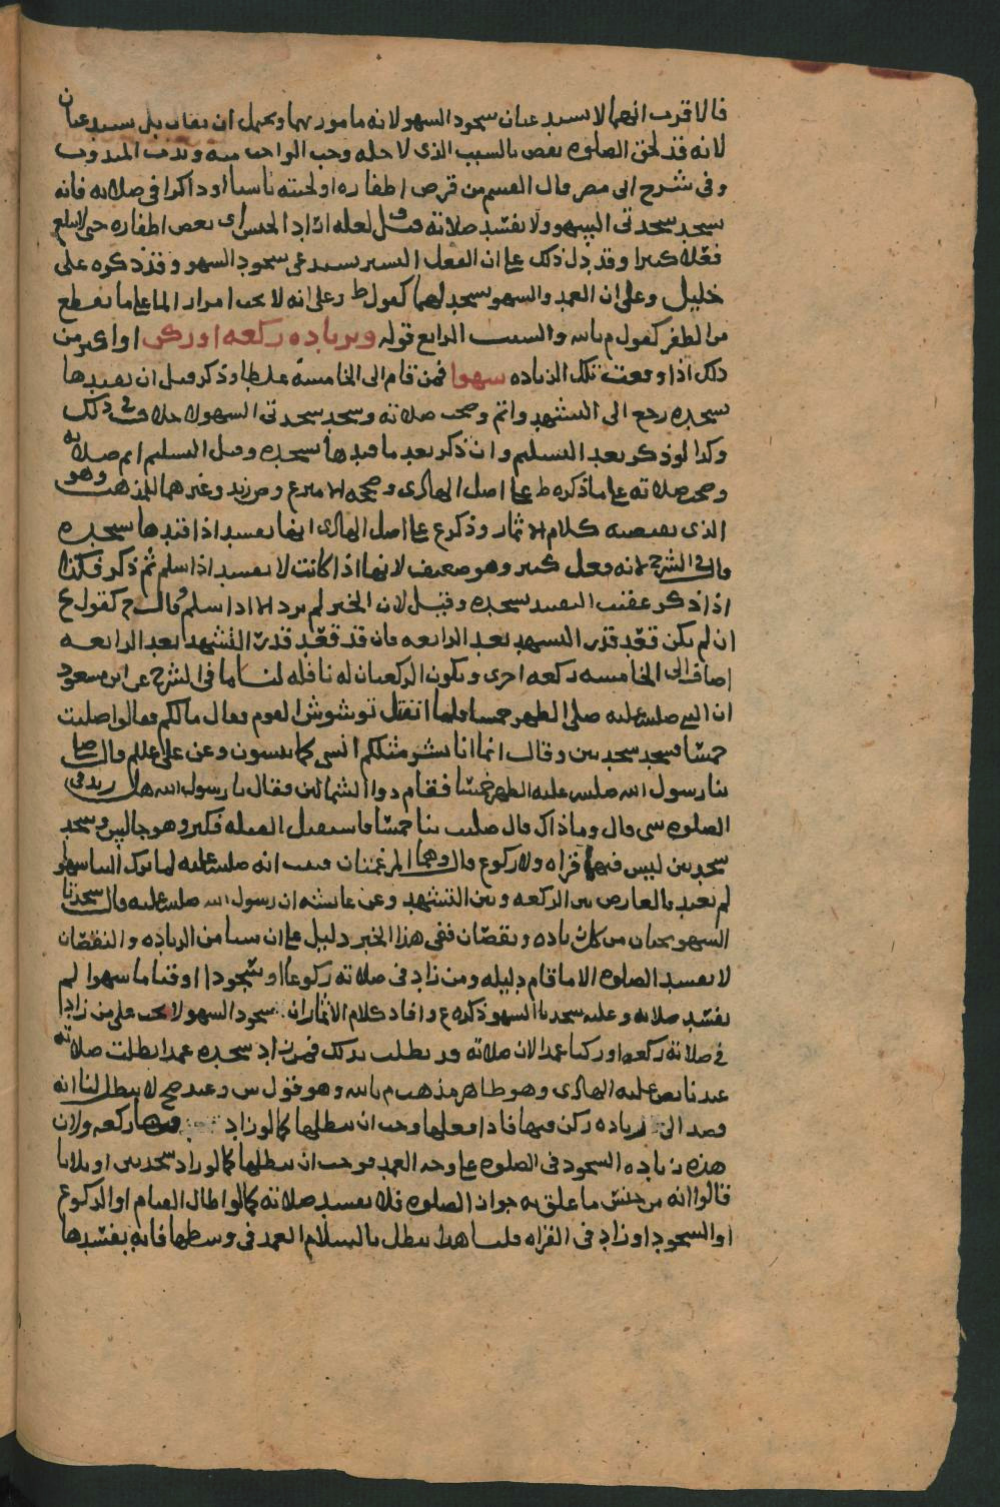 فالاقرب انهما لا يستدعيان سجود السهو لانه مامور بهما ويحتمل ان يقال بل يستدعيان
لانه قد لحق الصلوه نقص بالسبب الذي لاجله وجب الواجب منه وندب المندوب
وفي شرح ابي مضر قال القسم من قرض اظفاره او لحيته ناسيا او ذاكرا في صلاته فانه
يسجد سجدتي السهو ولا تفسد صلاته قيل لعله اراد الجنس اي بعض اظفاره حتى لا يبلغ
فعلا كثيرا وقد دل ذلك على ان الفعل اليسير يستدعي سجود السهو وقد ذكره علي
خليل وعلى ان العمد والسهو يسجد لهما كقول ط وعلى انه لا يجب امرار الما على ما يقطع
من الظفر كقول م بالله والسبب الرابع قوله وبزياده ركعه او ركن او اكثر من
ذلك اذا وقعت تلك الزياده سهوا فمن قام الى الخامسة غلطا وذكر قبل ان يقيدها
بسجده رجع الى التشهد واتم وصحت صلاته وسجد سجدتي السهو لا خلاف في ذلك
وكذا لو ذكر بعد التسليم وان ذكر بعد ما قيدها بسجده وقبل التسليم اتم صلاته
وصحت صلاته على ما ذكره ط على اصل الهادي وصححه الامير ع وص زيد وغيرهما للمذهب وهو
الذي يقتضيه كلام الاثمار وذكر ع على اصل الهادي انها تفسد اذا قيدها بسجده
قال في الشرح لانه فعل كثير وهو ضعيف لانها اذا كانت لا تفسد اذا سلم ثم ذكر فكذا
اذا ذكر عقيب التقييد بسجده وقيل لان الخبر لم يرد الا اذا سلم وقال ح كقول ع
ان لم يكن قعد قدر التشهد بعد الرابعه فان قد قعد قدر التشهد بعد الرابعه
اضاف الى الخامسه ركعه اخرى ويكون الركعتان له نافله لنا ما في الشرح عن ابن مسعود
ان النبي صلى الله عليه صلى الظهر خمسا فلما انفتل توشوش القوم فقال مالكم فقالوا صليت
خمسا فسجد سجدتين وقال انما انا بشر مثلكم انسى كما تنسون وعن علي علم قال صلى
بنا رسول الله صلى الله عليه الظهر خمسا فقام ذو الشمالين فقال يا رسول الله هل زيد في
الصلوه شي قال وما ذاك قال صليت بنا خمسا فاستقبل القبله فكبر وهو جالس وسجد
سجدتين ليس فيهما قراه ولا ركوع قال وهما المرغمتان فثبت انه صلى الله عليه لما ترك الساهي
لم يعتد بالعارض بين الركعه وبين التشهد وعن عايشه ان رسول الله صلى الله عليه قال سجدتا
السهو يجبان من كل زياده ونقصان ففي هذا الخبر دليل على ان شيا من الزياده والنقصان
لا يفسد الصلوه الا ما قام دليله ومن زاد في صلاته ركوعا او سجودا او قياما سهوا لم
تفسد صلاته وعليه سجدتا السهو ذكره ع وافاد كلام الاثمار ان سجود السهو لا يجب على من زاد
في صلاته ركعه او ركنا عمدا لان صلاته قد بطلت بذلك فمن زاد سجده عمدا بطلت صلاته
عندنا نص عليه الهادي وهو ظاهر مذهب م بالله وهو قول س وعند ح لا يبطل لنا انه
قصد الى زياده ركن فيها فاذا فعلها وجب ان يبطلها كما لو زاد فيها ركعه ولان
هذه زياده السجود في الصلوه على وجه العمد فوجب ان يبطلها كما لو زاد سجدتين او ثلاثا
قالوا انه من جنس ما علق به جواز الصلوه فلا يفسد صلاته كما لو اطال القيام او الركوع
او السجود او زاد في القراه قلنا هذا يبطل بالسلام العمد في وسطها فانه يفسدها